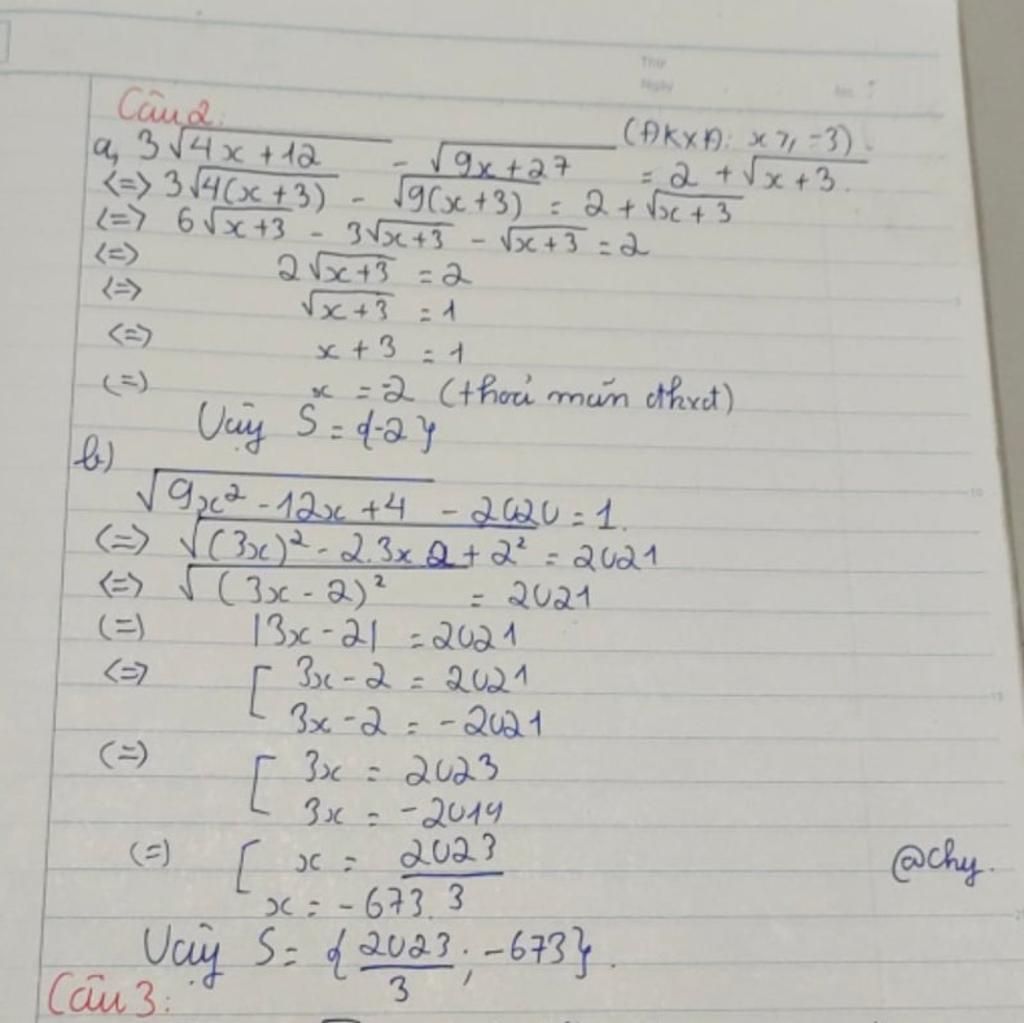 Thứ
Ngày
No.
Câu 2:
a, 3√(4x+12) - √(9x+27) = 2 + √(x+3). (ĐKXĐ: x ≥ -3).
<=> 3√(4(x+3)) - √(9(x+3)) = 2 + √(x+3)
<=> 6√(x+3) - 3√(x+3) - √(x+3) = 2
<=> 2√(x+3) = 2
<=> √(x+3) = 1
<=> x + 3 = 1
(=) x = -2 (thoả mãn đkxđ)
Vậy S = {-2}
b)
√(9x² - 12x + 4) - 2020 = 1.
<=> √((3x)² - 2.3x.2 + 2²) = 2021
<=> √((3x - 2)²) = 2021
(=) |3x - 2| = 2021
<=> [ 3x - 2 = 2021
3x - 2 = -2021
(=) [ 3x = 2023
3x = -2019
(=) [ x = 2023/3
x = -673.
@chy.
Vậy S = {2023/3; -673}.
Câu 3: